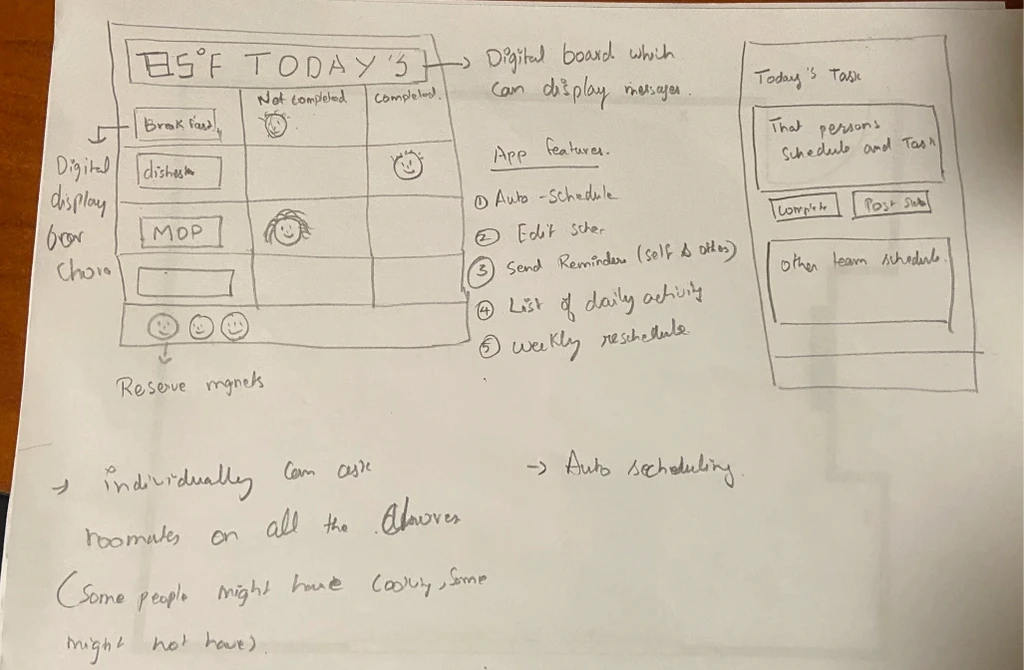 85°F TODAY'S
Not completed
completed.
Breakfast
dishes
MOP
Digital
display
for
Chore
Reserve mgnets
Digital board which
can display messages.
App features.
① Auto-schedule
② Edit scher
③ Send Reminders (self & others)
④ List of daily activity
⑤ weekly reschedule
Today's Task
That persons
schedule and Task
Complete
Post
other team schedule.
→ individually can ask
roomates on all the chores
(Some people might have cooking, some
might not have)
→ Auto scheduling.